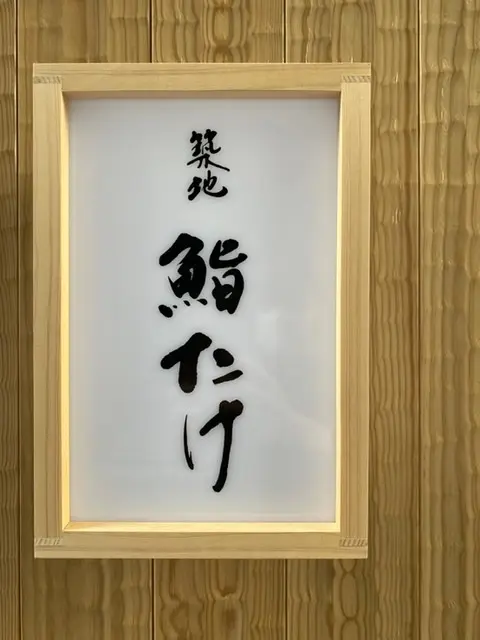 築地
鮨たけ